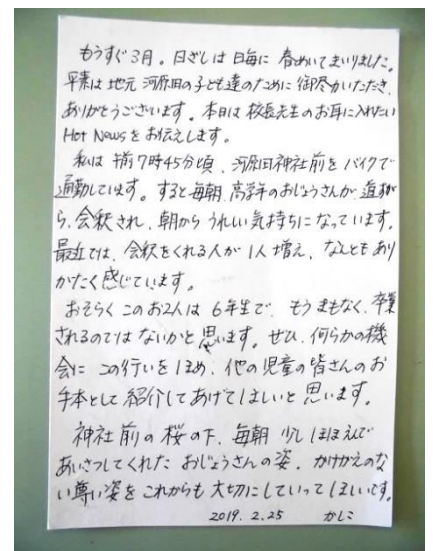 もうすぐ3月。日ざしは日毎に春めいてまいりました。
平素は地元河原田の子ども達のために御尽力いただき、
ありがとうございます。本日は校長先生のお耳に入れたい
Hot Newsをお伝えします。
私は午前7時45分頃、河原田神社前をバイクで
通勤しています。すると毎朝、高学年のおじょうさんが、道すが
ら、会釈され、朝からうれしい気持ちになっています。
最近では、会釈をくれる人が1人増え、なんともあり
がたく感じています。
おそらくこのお2人は6年生で、もうまもなく、卒業
されるのではないかと思います。ぜひ、何らかの機
会にこの行いをほめ、他の児童の皆さんのお
手本として紹介してあげてほしいと思います。
神社前の桜の下、毎朝少しほほえんで
あいさつしてくれたおじょうさんの姿、かけがえのな
い尊い姿をこれからも大切にしていってほしいです。
2019.2.25 かしこ